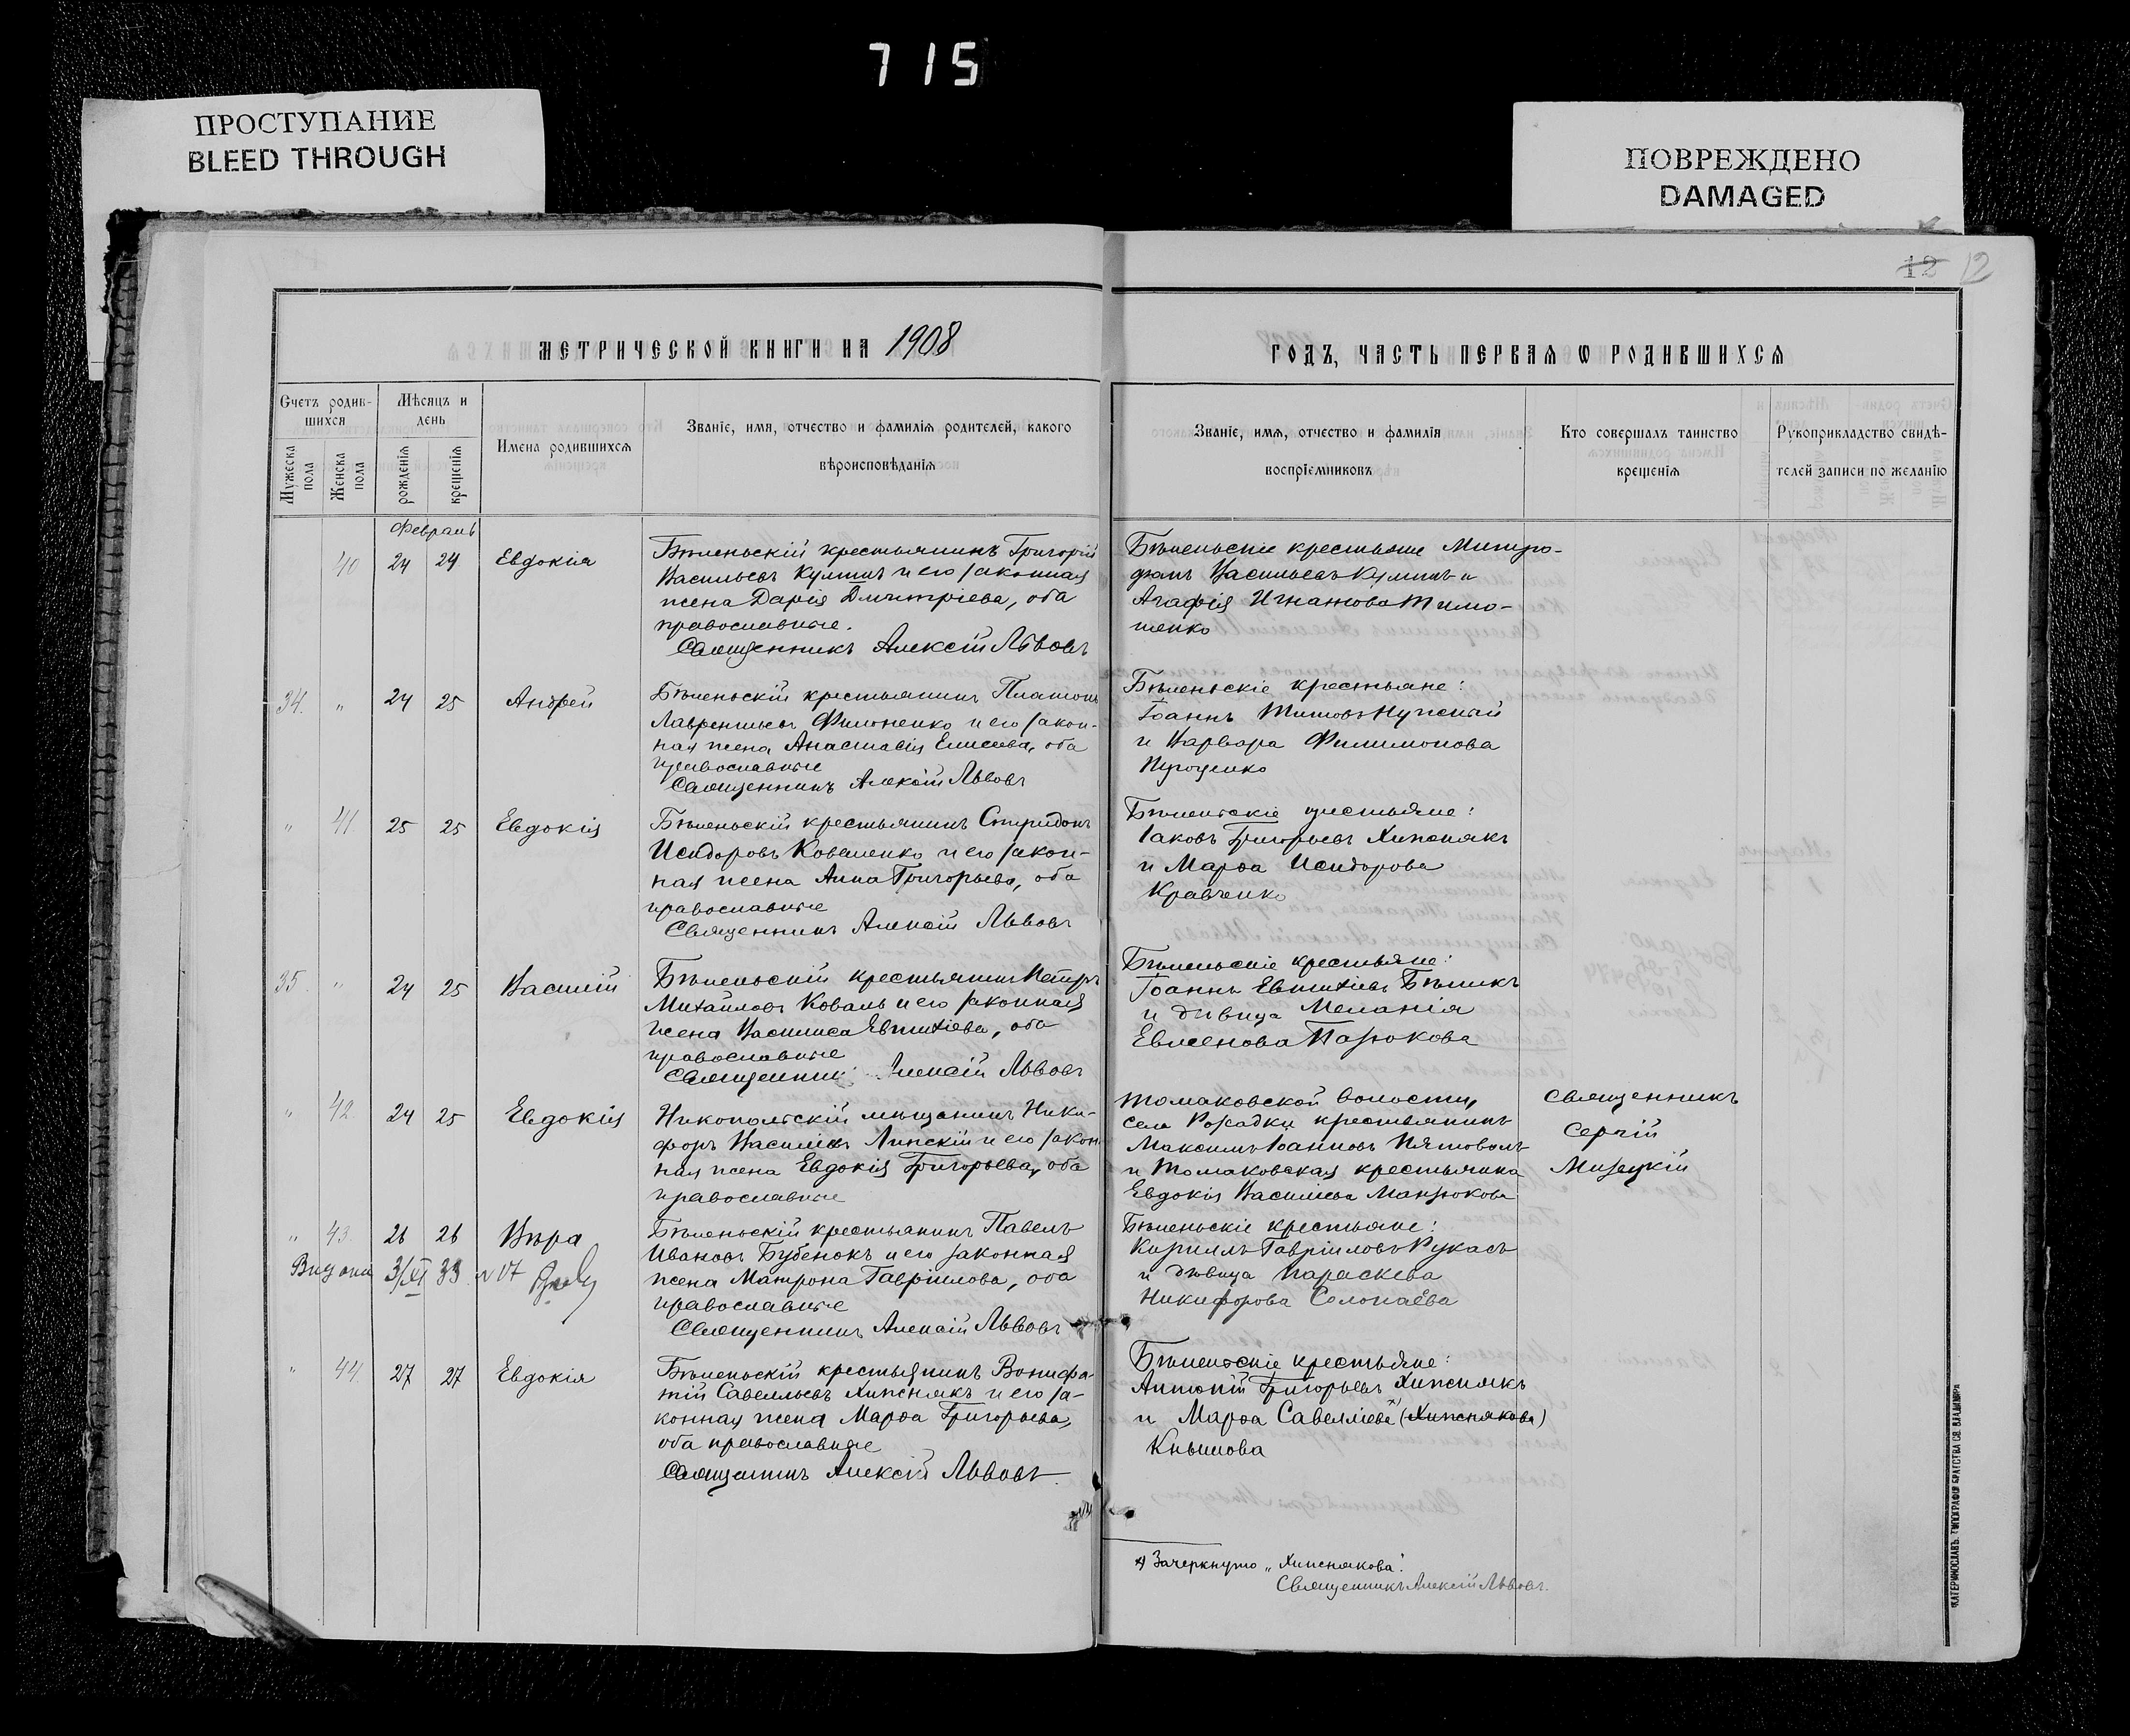 715
ПРОСТУПАНИЕ
BLEED THROUGH
ПОВРЕЖДЕНО
DAMAGED
12 12
МЕТРИЧЕСКОЙ КНИГИ НА 1908
ГОДЪ, ЧАСТЬ ПЕРВАЯ Ѡ РОДИВШИХСЯ
Счетъ родив-
шихся
Мужеска
пола
Женска
пола
Мѣсяцъ и
день
рожденія
крещенія
Имена родившихся
Званіе, имя, отчество и фамилія родителей, какого
вѣроисповѣданія
Званіе, имя, отчество и фамилія
воспріемниковъ
Кто совершалъ таинство
крещенія
Рукоприкладство свидѣ-
телей записи по желанію
Февраль
40 24 24 Евдокія
Бѣленьскій крестьянинъ Григорій
Васильевъ и его законная
жена Дарія Дмитріева, оба
православные.
Священникъ Алексій Львовъ
Бѣленьскіе крестьяне Митро-
фанъ Васильевъ и
Агафія Игнатова Тимо-
шенко
34. " 24 25 Андрей
Бѣленьскій крестьянинъ Платонъ
Лаврентьевъ Филоненко и его закон-
ная жена Анастасія Елисеева, оба
православные
Священникъ Алексій Львовъ
Бѣленьскіе крестьяне:
Іоаннъ Титовъ
и Варвара Филимонова
Проценко
" 41 25 25 Евдокія
Бѣленьскій крестьянинъ Спиридонъ
Исидоровъ Коваленко и его закон-
ная жена Анна Григорьева, оба
православные
Священникъ Алексій Львовъ
Бѣленьскіе крестьяне:
Іаковъ Григорьевъ Хижнякъ
и Марѳа Исидорова
Кравченко
35. " 24 25 Василій
Бѣленьскій крестьянинъ Петръ
Михайловъ Коваль и его законная
жена Василиса Евтихіева, оба
православные
Священникъ Алексій Львовъ
Бѣленьскіе крестьяне:
Іоаннъ Евтихіевъ Бѣликъ
и дѣвица Меланія
Евменова Пазюкова
" 42 24 25 Евдокія
Никопольскій мѣщанинъ Ники-
форъ Василіевъ Липскій и его закон
ная жена Евдокія Григорьева, оба
православные
Томаковской волости,
села крестьянинъ
Максимъ Іоанновъ
и Томаковская крестьянка
Евдокія Василіева Манзюкова
Священникъ
Сергій
Мизецкій
" 43. 26 26 Вѣра
3/XI 33 17
Бѣленьскій крестьянинъ Павелъ
Ивановъ Бубенокъ и его законная
жена Матрона Гавріилова, оба
православные
Священникъ Алексій Львовъ
Бѣленьскіе крестьяне:
Кириллъ Гавріиловъ Рукасъ
и дѣвица Параскева
Никифорова Солопаева
" 44 27 27 Евдокія
Бѣленьскій крестьянинъ Вонифа-
тій Савельевъ Хижнякъ и его за-
конная жена Марѳа Григорьева,
оба православные
Священникъ Алексій Львовъ.
Бѣленьскіе крестьяне:
Антоній Григорьевъ Хижнякъ
и Марѳа Савелліева (Хижнякова)
Кнышова
х) Зачеркнуто „Хижнякова".
Священникъ Алексій Львовъ.
ЕКАТЕРИНОСЛАВЪ. ТИПОГРАФІЯ БРАТСТВА СВ. ВЛАДИМІРА